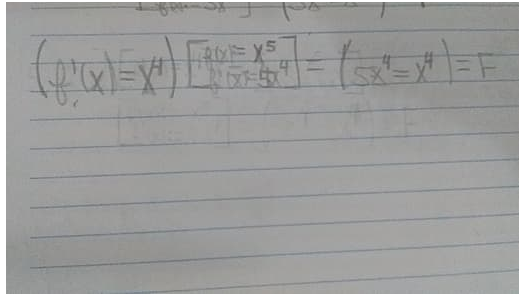 (f'(x) = x⁴) [f(x) = x⁵
f'(x) = 5x⁴] = (5x⁴ = x⁴) = F